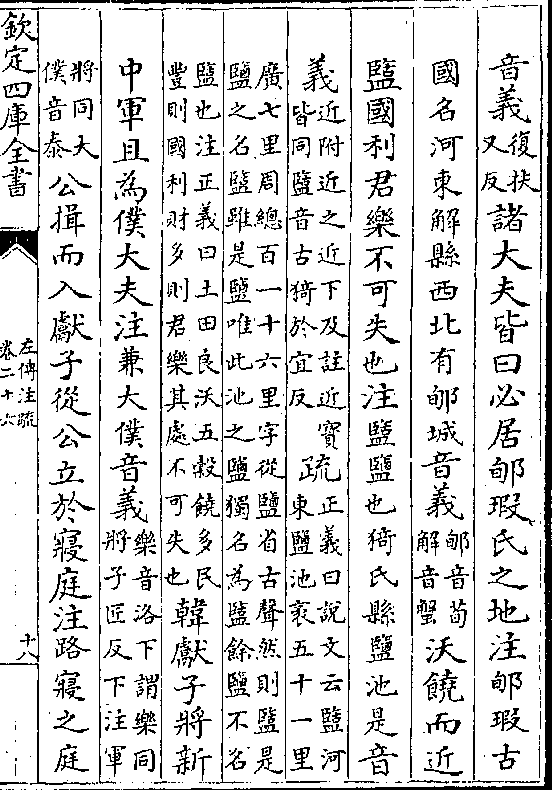 音義復扶又反諸大夫皆曰必居郇瑕氏之地注郇瑕古
國名河東解縣西北有郇城音義郇音荀解音蟹沃饒而近
盬國利君樂不可失也注盬鹽也猗氏縣鹽池是音
義近附近之近下及註近寳皆同盬音古猗於宜反疏正義曰說文云盬河東鹽池袤五十一里
廣七里周總百一十六里字從鹽省古聲然則盬是鹽之名盬雖是鹽唯此池之鹽獨名為盬餘鹽不名
盬也注正義曰土田良沃五穀饒多民豐則國利財多則君樂其處不可失也韓獻子將新
中軍且為僕大夫注兼大僕音義樂音洛下謂樂同將子匠反下注軍
將同大僕音泰公揖而入獻子從公立於寢庭注路寢之庭
欽定四庫全書
左傳注疏
卷二十六
十八